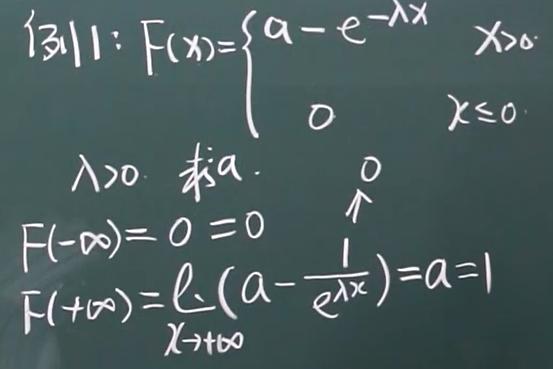 例1: F(x)={a-e^{-λx} x>0
0 x≤0
λ>0. 求a.
F(-∞)=0=0
0
↑
F(+∞)=l.(a-\frac{1}{e^{λx}})=a=1
x→+∞